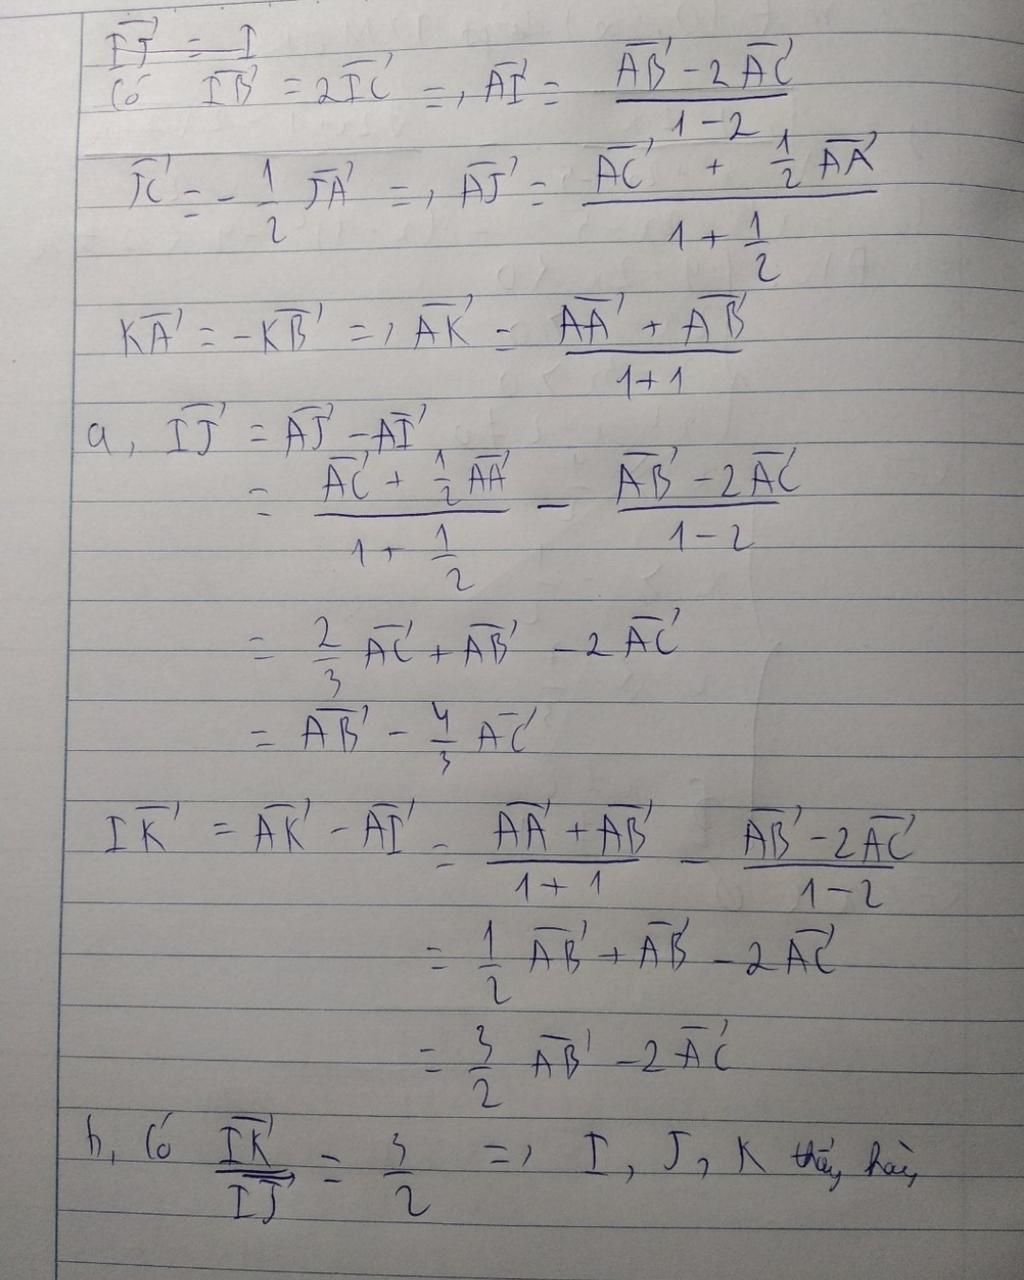 $\overrightarrow{IJ} = I$
Có $\overrightarrow{IB} = 2\overrightarrow{IC}$ => $\overrightarrow{AI} = \frac{\overrightarrow{AB} - 2\overrightarrow{AC}}{1-2}$
$\overrightarrow{JC} = -\frac{1}{2}\overrightarrow{JA}$ => $\overrightarrow{AJ} = \frac{\overrightarrow{AC} + \frac{1}{2}\overrightarrow{AA}}{1+\frac{1}{2}}$
$\overrightarrow{KA} = -\overrightarrow{KB}$ => $\overrightarrow{AK} = \frac{\overrightarrow{AA} + \overrightarrow{AB}}{1+1}$
a, $\overrightarrow{IJ} = \overrightarrow{AJ} - \overrightarrow{AI}$
$= \frac{\overrightarrow{AC} + \frac{1}{2}\overrightarrow{AA}}{1+\frac{1}{2}} - \frac{\overrightarrow{AB} - 2\overrightarrow{AC}}{1-2}$
$= \frac{2}{3}\overrightarrow{AC} + \overrightarrow{AB} - 2\overrightarrow{AC}$
$= \overrightarrow{AB} - \frac{4}{3}\overrightarrow{AC}$
$\overrightarrow{IK} = \overrightarrow{AK} - \overrightarrow{AI} = \frac{\overrightarrow{AA} + \overrightarrow{AB}}{1+1} - \frac{\overrightarrow{AB} - 2\overrightarrow{AC}}{1-2}$
$= \frac{1}{2}\overrightarrow{AB} + \overrightarrow{AB} - 2\overrightarrow{AC}$
$= \frac{3}{2}\overrightarrow{AB} - 2\overrightarrow{AC}$
b, Có $\frac{\overrightarrow{IK}}{\overrightarrow{IJ}} = \frac{3}{2}$ => I, J, K thẳng hàng